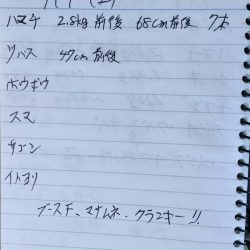 ハマチ 2.8kg前後 68cm前後 7本
ツバス 47cm前後
ホウボウ
スマ
サゴシ
イトヨリ
ブースデ、マナムネ、クランキー!!